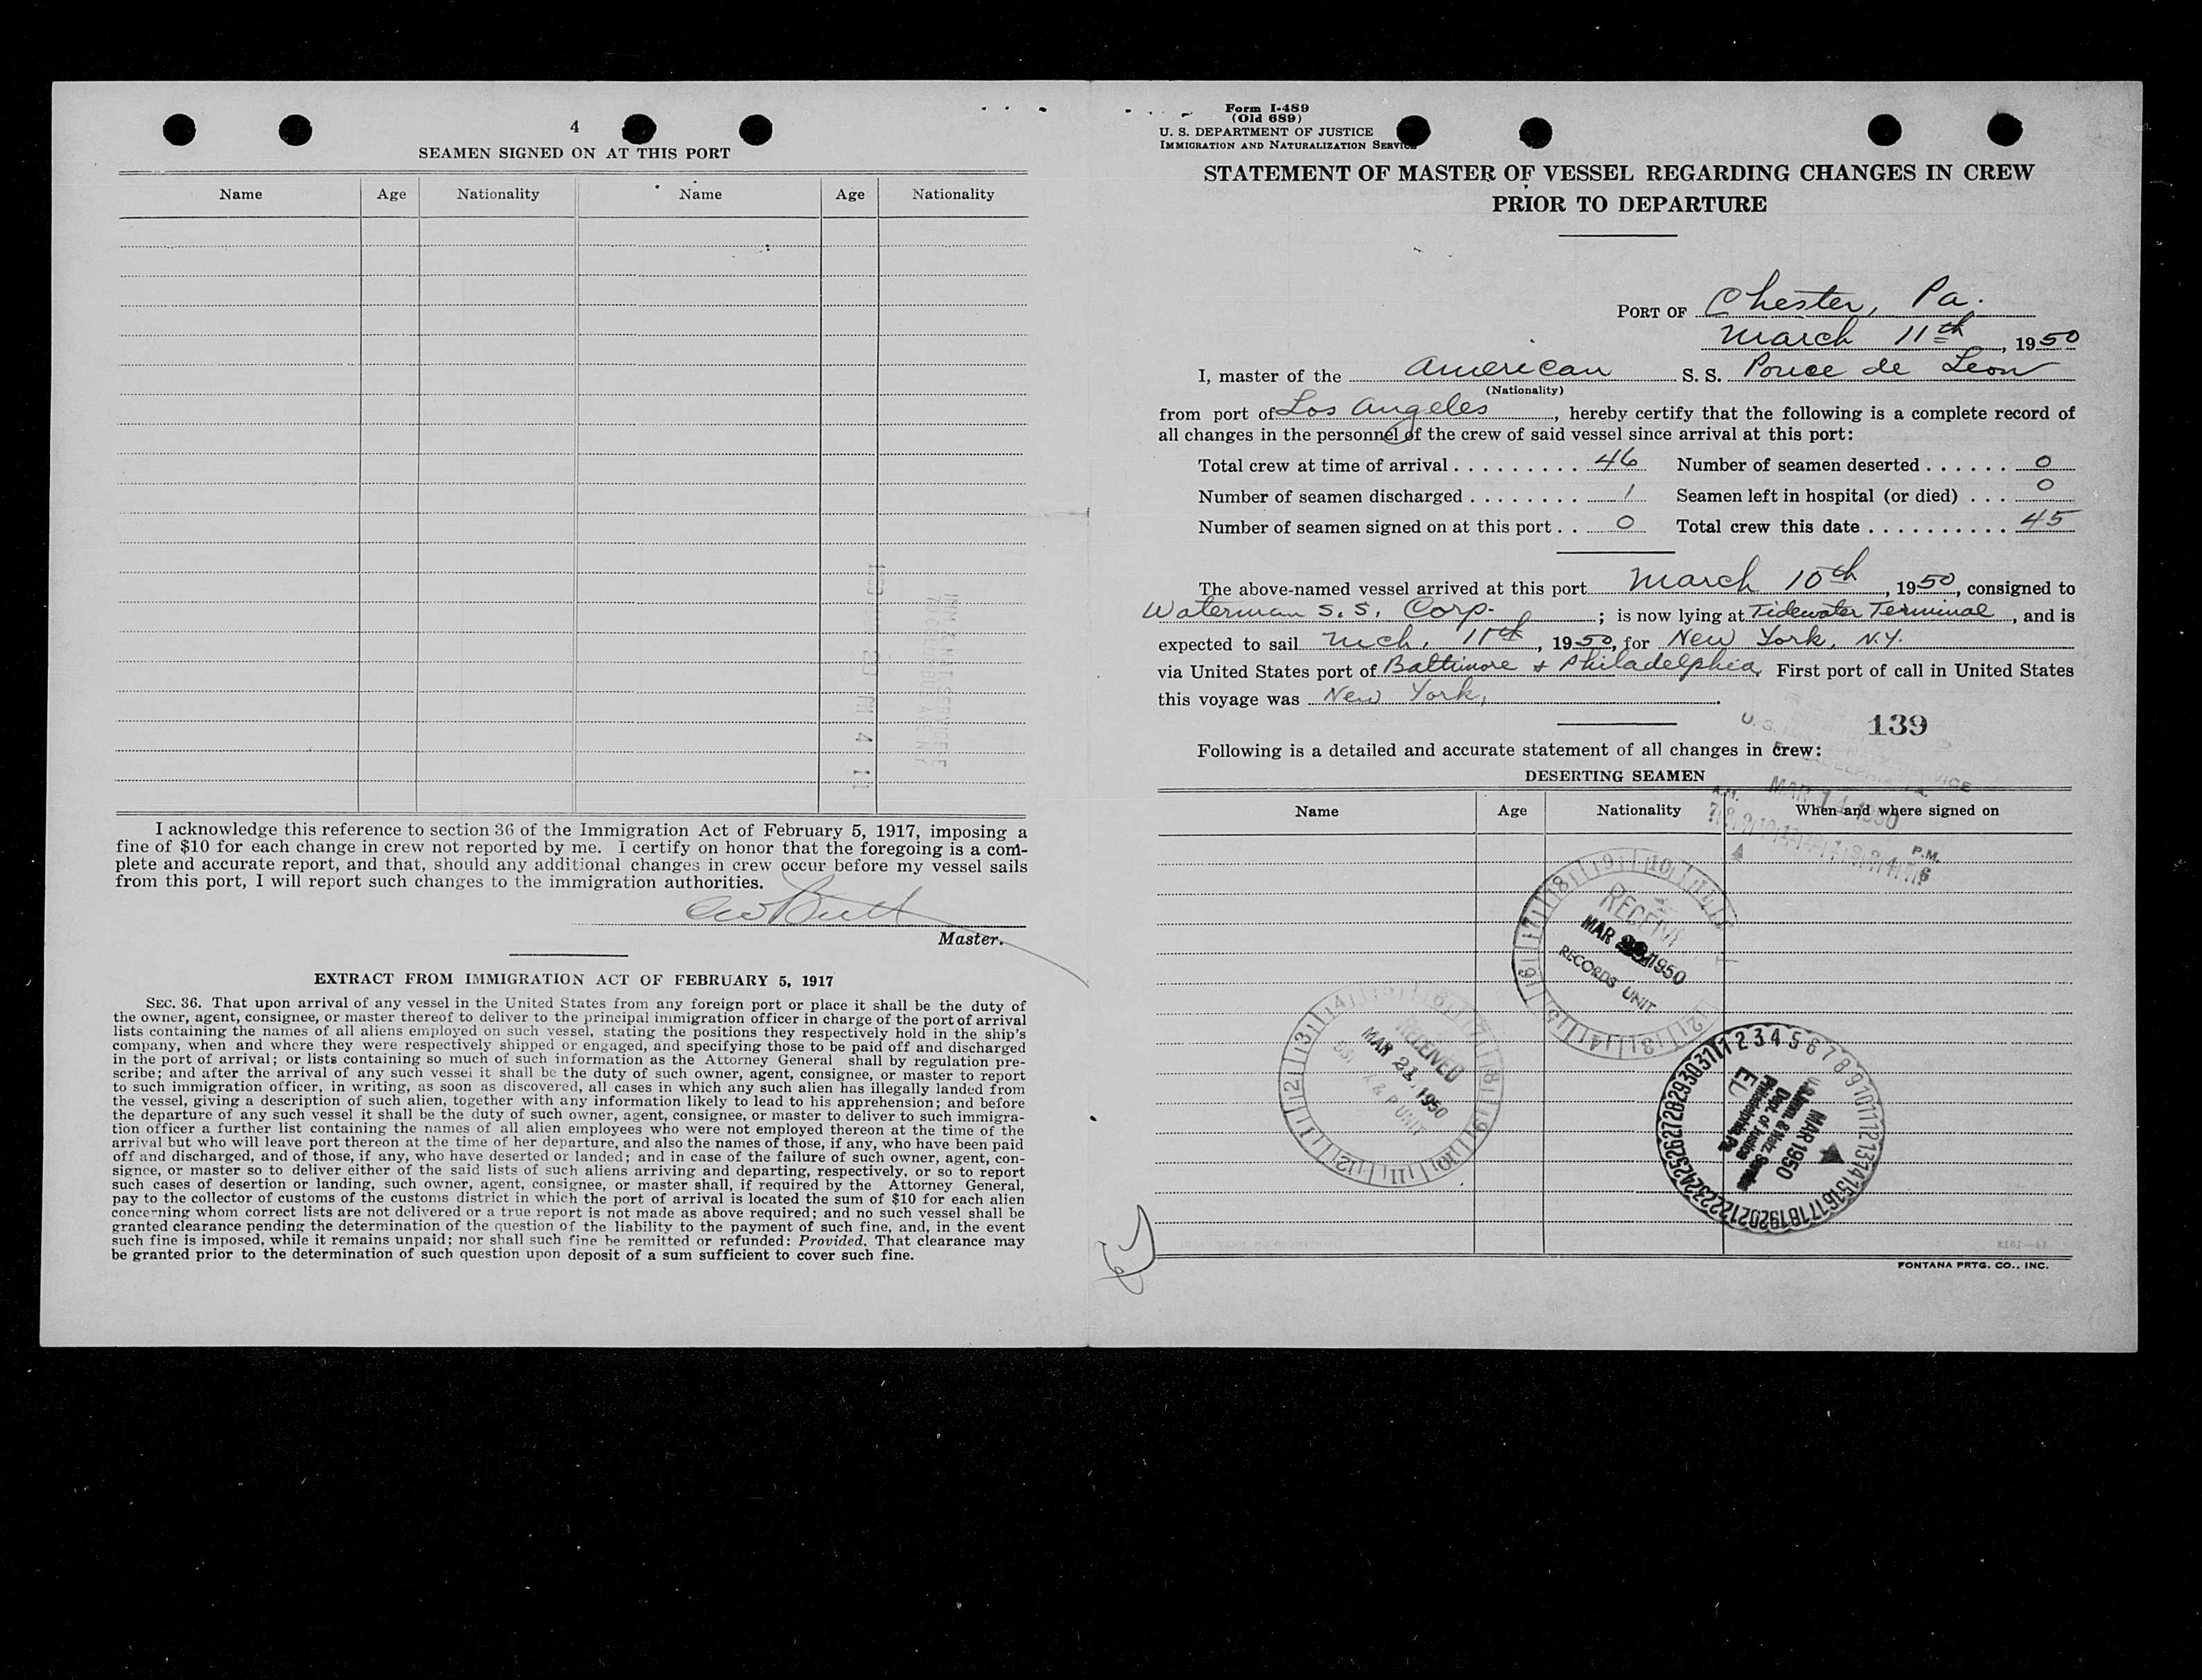 4
SEAMEN SIGNED ON AT THIS PORT
Name Age Nationality Name Age Nationality
I acknowledge this reference to section 36 of the Immigration Act of February 5, 1917, imposing a
fine of $10 for each change in crew not reported by me. I certify on honor that the foregoing is a com-
plete and accurate report, and that, should any additional changes in crew occur before my vessel sails
from this port, I will report such changes to the immigration authorities.
Master.
EXTRACT FROM IMMIGRATION ACT OF FEBRUARY 5, 1917
SEC. 36. That upon arrival of any vessel in the United States from any foreign port or place it shall be the duty of
the owner, agent, consignee, or master thereof to deliver to the principal immigration officer in charge of the port of arrival
lists containing the names of all aliens employed on such vessel, stating the positions they respectively hold in the ship's
company, when and where they were respectively shipped or engaged, and specifying those to be paid off and discharged
in the port of arrival; or lists containing so much of such information as the Attorney General shall by regulation pre-
scribe; and after the arrival of any such vessel it shall be the duty of such owner, agent, consignee, or master to report
to such immigration officer, in writing, as soon as discovered, all cases in which any such alien has illegally landed from
the vessel, giving a description of such alien, together with any information likely to lead to his apprehension; and before
the departure of any such vessel it shall be the duty of such owner, agent, consignee, or master to deliver to such immigra-
tion officer a further list containing the names of all alien employees who were not employed thereon at the time of the
arrival but who will leave port thereon at the time of her departure, and also the names of those, if any, who have been paid
off and discharged, and of those, if any, who have deserted or landed; and in case of the failure of such owner, agent, con-
signee, or master so to deliver either of the said lists of such aliens arriving and departing, respectively, or so to report
such cases of desertion or landing, such owner, agent, consignee, or master shall, if required by the Attorney General,
pay to the collector of customs of the customs district in which the port of arrival is located the sum of $10 for each alien
concerning whom correct lists are not delivered or a true report is not made as above required; and no such vessel shall be
granted clearance pending the determination of the question of the liability to the payment of such fine, and, in the event
such fine is imposed, while it remains unpaid; nor shall such fine be remitted or refunded: Provided, That clearance may
be granted prior to the determination of such question upon deposit of a sum sufficient to cover such fine.
Form I-489
(Old 689)
U. S. DEPARTMENT OF JUSTICE
IMMIGRATION AND NATURALIZATION SERVICE
STATEMENT OF MASTER OF VESSEL REGARDING CHANGES IN CREW
PRIOR TO DEPARTURE
PORT OF Chester, Pa.
March 11th, 1950
I, master of the American S. S. Ponce de Leon
(Nationality)
from port of Los Angeles, hereby certify that the following is a complete record of
all changes in the personnel of the crew of said vessel since arrival at this port:
Total crew at time of arrival . . . . . . . . . 46 Number of seamen deserted . . . . . . 0
Number of seamen discharged . . . . . . . . 1 Seamen left in hospital (or died) . . . 0
Number of seamen signed on at this port . . 0 Total crew this date . . . . . . . . . . 45
The above-named vessel arrived at this port March 10th, 1950, consigned to
Waterman S. S. Corp. ; is now lying at Tidewater Terminal, and is
expected to sail Mch. 11th, 1950, for New York, N.Y.
via United States port of Baltimore & Philadelphia. First port of call in United States
this voyage was New York,.
139
Following is a detailed and accurate statement of all changes in crew:
DESERTING SEAMEN
Name Age Nationality When and where signed on
A.M. P.M.
RECEIVED
MAR 1950
RECORDS UNIT
RECEIVED
MAR 21 1950
MAR 1950
U.S. Imm. & Natz. Service
Dept. of Justice
Philadelphia, Pa.
FONTANA PRTG. CO., INC.